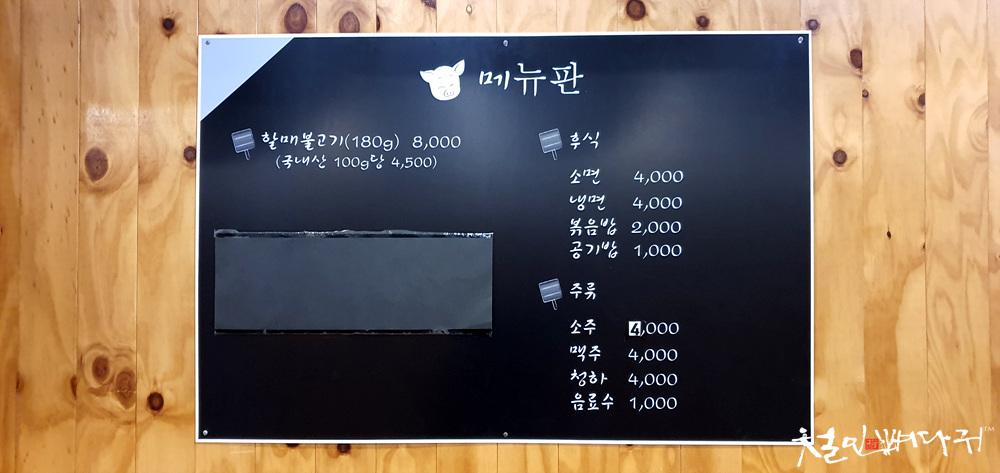 메뉴판
할매불고기(180g) 8,000
(국내산 100g당 4,500)
후식
소면 4,000
냉면 4,000
볶음밥 2,000
공기밥 1,000
주류
소주 4,000
맥주 4,000
청하 4,000
음료수 1,000
철인뼈다귀™